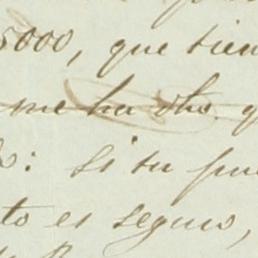 5000, que tien
me ha dho. q
: Si su pu
to es seguro,